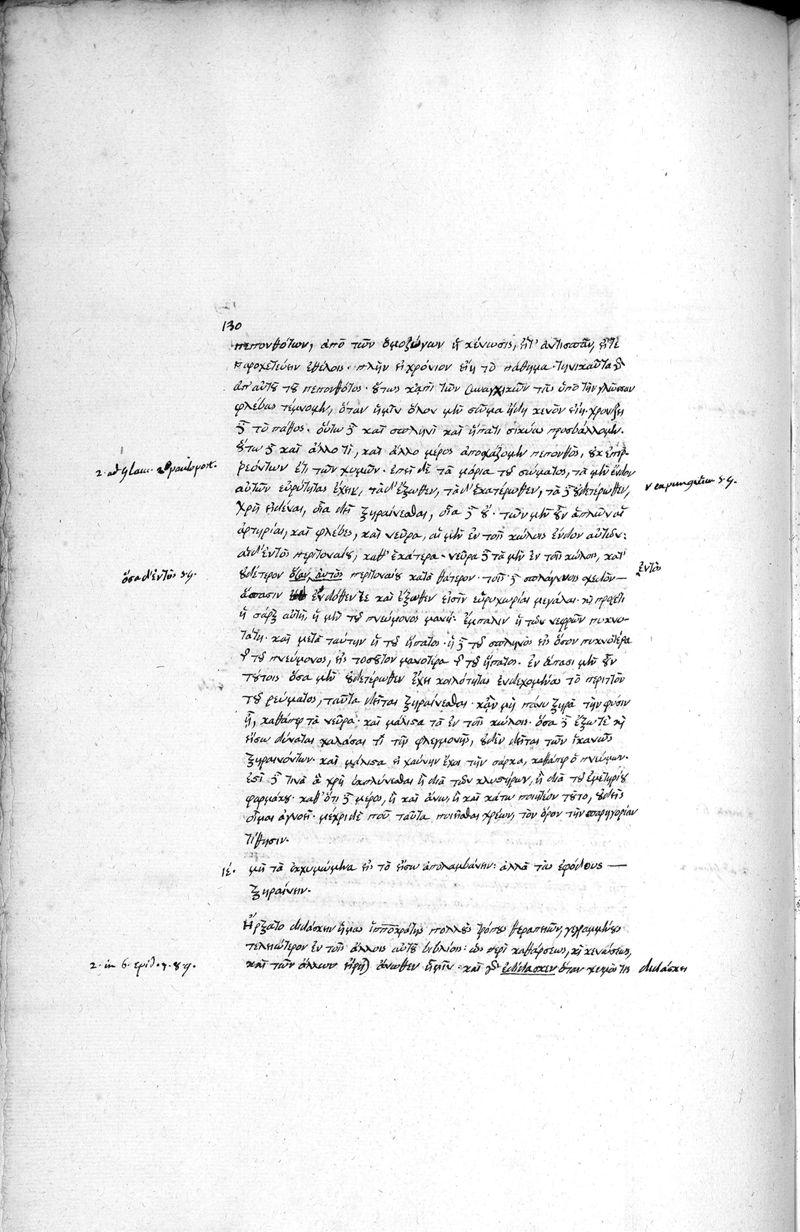 130
πεπονθότων, ἀπὸ τῶν ὁμοζύγων ἡ κένωσις, εἴτ' ἀντισπᾶν, εἴτε
παροχετεύειν ἐθέλοις· πλὴν εἰ χρόνιον εἴη τὸ πάθημα· τηνικαῦτα γὰρ
ἀπ' αὐτοῦ τοῦ πεπονθότος· οὕτως κἀπὶ τῶν συναγχικῶν τὰς ὑπὸ τὴν γλῶσσαν
φλέβας τέμνομεν, ὅταν ἡμῖν ὅλον μὲν σῶμα ἤδη κενὸν εἴη· χρονίζῃ
δὲ τὸ πάθος· οὕτω δὲ καὶ σπληνὶ καὶ ἥπατι σικύαν προσβάλλομεν·
οὕτω δὲ καὶ ἄλλο τι, καὶ ἄλλο μέρος ἀποσχάζομεν πεπονθὸς, οὐκ ἐπιρ-
2. ad Glauc.
ρεόντων ἔτι τῶν χυμῶν· ἐπεὶ δὲ τὰ μόρια τοῦ σώματος, τὰ μὲν ἔνδον
αὐτῶν εὐρύτητας ἔχει, τὰ δ' ἔξωθεν, τὰ δ' ἑκατέρωθεν, τὰ δὲ οὐδετέρωθεν,
χρὴ εἰδέναι, οἷα δεῖ ξηραίνεσθαι, οἷα δὲ οὔ· τῶν μὲν οὖν ἁπλῶν αἱ
ἀρτηρίαι, καὶ φλέβες, καὶ νεῦρα, αἱ μὲν ἐν τοῖς κώλοις ἔνδον αὐτῶν·
αἱ δ' ἐντὸς περιτοναίου, καθ' ἑκάτερα· νεῦρα δὲ τὰ μὲν ἐν τοῖς κώλοις, κατ'
ὅσα δ' ἐντὸς
οὐδέτερον ὅσον αὐτὸς περιτοναίου κατὰ θάτερον· τοῖς δὲ σπλάγχνοις σχεδὸν
ἐντὸς
ἅπασιν ἔνδοθέν τε καὶ ἔξωθέν εἰσιν εὐρυχωρίαι μεγάλαι· καὶ προσέτι
ἡ σὰρξ αὐτὴ, ἡ μὲν τοῦ πνεύμονος μανή· ἔμπαλιν ἡ τῶν νεφρῶν πυκνο-
τάτη· καὶ μετὰ ταύτην ἡ τοῦ ἥπατος· ἡ δὲ τοῦ σπληνὸς εἰς ὅσον πυκνοτέρα
τῆς τοῦ πνεύμονος, εἰς τοσοῦτον μανοτέρα τῆς τοῦ ἥπατος· ἐν ἅπασι μὲν οὖν
τούτοις ὅσα μὲν οὐδετέρωθεν ἔχει κοιλότητας ἐνδεχομένας τὸ περιττὸν
τοῦ ῥεύματος, ταῦτα δεῖται ξηραίνεσθαι· κἂν μὴ πάνυ ξηρὰ τὴν φύσιν
ᾖ, καθάπερ τὰ νεῦρα· καὶ μάλιστα τὰ ἐν τοῖς κώλοις· ὅσα δὲ ἔξω τε καὶ
εἴσω δύναται χαλάσαι τι τῆς φλεγμονῆς, οὐδὲν δεῖται τῶν ἱκανῶς
ξηραινόντων· καὶ μάλιστα εἰ χαύνην ἔχοι τὴν σάρκα, καθάπερ ὁ πνεύμων·
ἔστι δὲ τινὰ ἃ χρὴ ἐκπλύνεσθαι ἢ διὰ τῶν κλυστήρων, ἢ διὰ τοῦ ἐμετηρίου
φαρμάκου· καθ' ὅτι δὲ μέρος, ἢ καὶ ἄνω, ἢ καὶ κάτω ποιητέον τοῦτο, οὐδεὶς
οἶμαι ἀγνοεῖ· μέχρι δὲ ποῦ ταῦτα ποιεῖσθαι χρεὼν, τὸν ὅρον τὴν παρηγορίαν
τίθησιν.
ιέ. μὴ τὰ ἐκχυμώμενα εἰς τὸ εἴσω ἀπολαμβάνειν: ἀλλὰ τὰς ἐφόδους
ξηραίνειν.
Ἤρξατο διδάσκειν ἡμᾶς ἱπποκράτης πολλοὺς τρόπους θεραπειῶν, γεγραμμένους
τελειώτερον ἐν τοῖς ἄλλοις αὐτοῦ βιβλίοις: ὡς περὶ καθάρσεως, καὶ κενώσεως,
2. in 6. epid.
καὶ τῶν ἄλλων εἴρηται ἄνωθεν ἡμῖν· καὶ γὰρ ἐδίδασκεν ὅταν χυμός τις διδάσκει